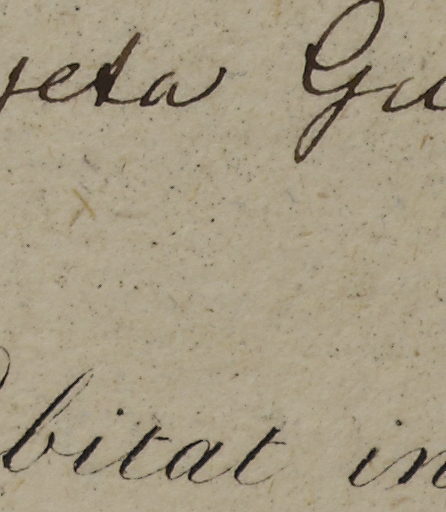 yeta Gu
bitat in